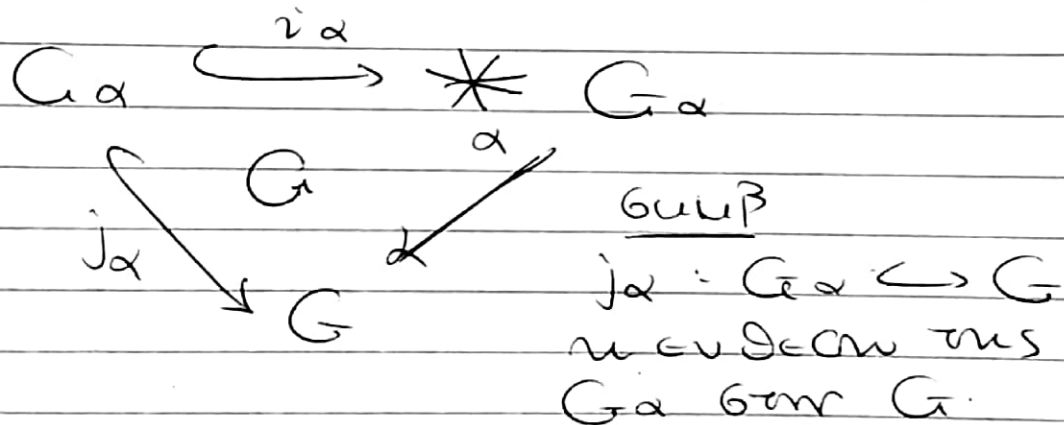 i α
G α ↪ * G α
α
G
j α
G
συμβ
j α : G α ↪ G
η ένθεση της
G α στην G.